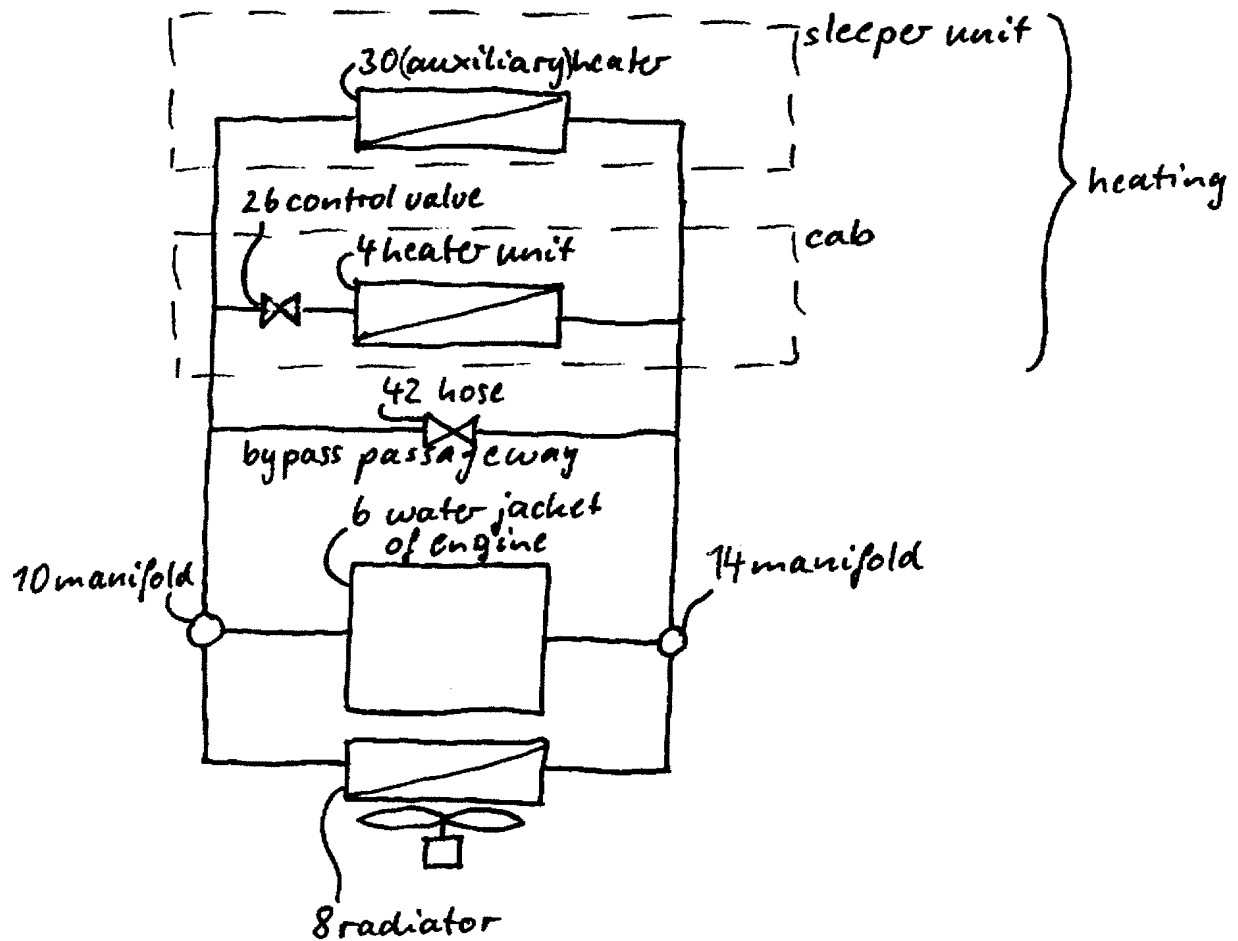 sleeper unit
30(auxiliary)heater
heating
26 control valve
cab
4 heater unit
42 hose
bypass passageway
6 water jacket
of engine
10 manifold
14 manifold
8 radiator